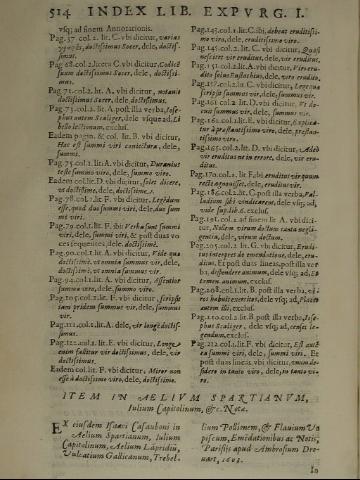 514 INDEX LIB. EXPVRG. I.
vsq; ad finem Annotationis.
Pag. 57. col. 2. lit. C. vbi dicitur, varias
doctissimus Socer, dele, doctissi-
mus.
Pag. 68. col. 2. litera C. vbi dicitur, Codicē
suum doctissimus Socer, dele, doctissi-
mus.
Pag. 71. col. 2. lit. A. vbi dicitur,
doctissimus Socer, dele, doctissimus.
Pag. 73. col. 2. lit. A. post illa verba, Iose-
phus autem Scaliger, dele vsque ad, Li-
bello lectionum, exclus.
Eadem pagin. & col. lit. B. vbi dicitur,
Hæc est summi viri coniectura, dele,
summi.
Pag. 75. col. 2. lit. A. vbi dicitur,
teste summo viro, dele, summo.
Eadem col. lit. D. vbi dicitur, solet dicere,
vt doctissime, dele, doctissime.
Pag. 78. col. 1. lit. F. vbi dicitur, Legēdum
esse, quod duo summi viri, dele, duo sum
mi viri.
Pag. 79. col. 2. lit. F. ibi Verba sunt summi
viri, dele, summi viri. & post duas vo-
ces sequentes, dele, doctissimè.
Pag. 90. col. 1. lit. A. vbi dicitur, Vide quæ
doctissimè, vt omnia summus vir, dele,
doctissimè, vt omnia summus vir.
Pag. 94. col. 1. lit. A. vbi dicitur, Assentior
summo viro, dele, summo viro.
Pag. 105. col. 2. lit. F. vbi dicitur, scripsit
iam pridem summus vir, dele, summus
vir.
Pag. 111. col. 2. lit. A. dele, vir longe doctis-
simus.
Pag. 112. col. 1. lit. E. vbi dicitur, Longe
enim fallitur vir doctissimus, dele, vir
doctissimus.
Eadem col. lit. F. vbi dicitur, Miror non
esse à doctissimo viro, dele, doctissimo.
Pag. 145. col. 1. lit. C. ibi, debeat eruditissi-
mo viro, dele, eruditissimo viro.
Pag. 145. col. 2. lit. C. vbi dicitur, Quæsi
nesciret vir eruditus, dele, vir eruditus.
Pag. 151. col. 1. lit. D. vbi dicitur, Vir eru-
ditus, dele, vir eruditus.
Pag. 157. col. 2. lit. C. vbi dicitur, Lege vt
scripsit summus vir, dele, summus vir.
Pag. 161. col. 2. lit. D. vbi dicitur, Et do-
cuit summus vir, dele, summus vir.
Pag. 162. col. 1. lit. E. vbi dicitur,
tur à præstantissimo viro, dele, præstan-
tissimo viro.
Pag. 165. col. 1. lit. D. vbi dicitur, Adeò
vir eruditus ne in errore, dele, vir eru-
ditus.
Pag. 170. col. 1. lit. F. ibi, eruditus vir quam
recte agnouisset, dele, eruditus vir.
Pag. 186. col. 2. lit. C. post illa verba, Pal-
ludium sibi vindicarent, dele vsq; ad,
vide sup. lib. 6. exclus.
Pag. 191. col. 2. ad finem lit. A. vbi di-
citur, Nolem virum doctum tanta negli-
gentia, dele, virum doctum.
Pag. 205. col. 1. lit. G. vbi dicitur, Erudi-
tus interpres de emendatione, dele, eru-
ditus. Et post duas lineas, post illa ver-
ba, defendere animum, dele vsq; ad, Ex-
tremum animum, exclus.
Pag. 208. col. 1. lit. B. post illa verba, vi-
ros habuit exercitus, dele vsq; ad, Placet
autem illi, exclus.
Pag. 210. col. 2. lit. B. post illa verba, Iose-
phus Scaliger, dele vsq; ad, censet le-
gendum, exclus.
Pag. 212. col. 1. lit. F. vbi dicitur, Est auct-
su summi viri, dele, summi viri. Et
post duas lineas vbi dicitur,
dere in tanto viro, dele, in tanto vi-
ro.
ITEM IN AELIVM SPARTIANVM,
Iulium Capitolinum, &c. Notæ.
EX eiusdem Isaaci Casauboni in
Aelium Spartianum, Iulium
Capitolinum, Aelium Lāpridiū,
Vulcatium Gallicanum, Trebel-
lium Pollionem, & Flauium Vo
piscum, Emēdationibus ac Notis,
Parisiis apud Ambrosium Dro-
uart, 1603.
In